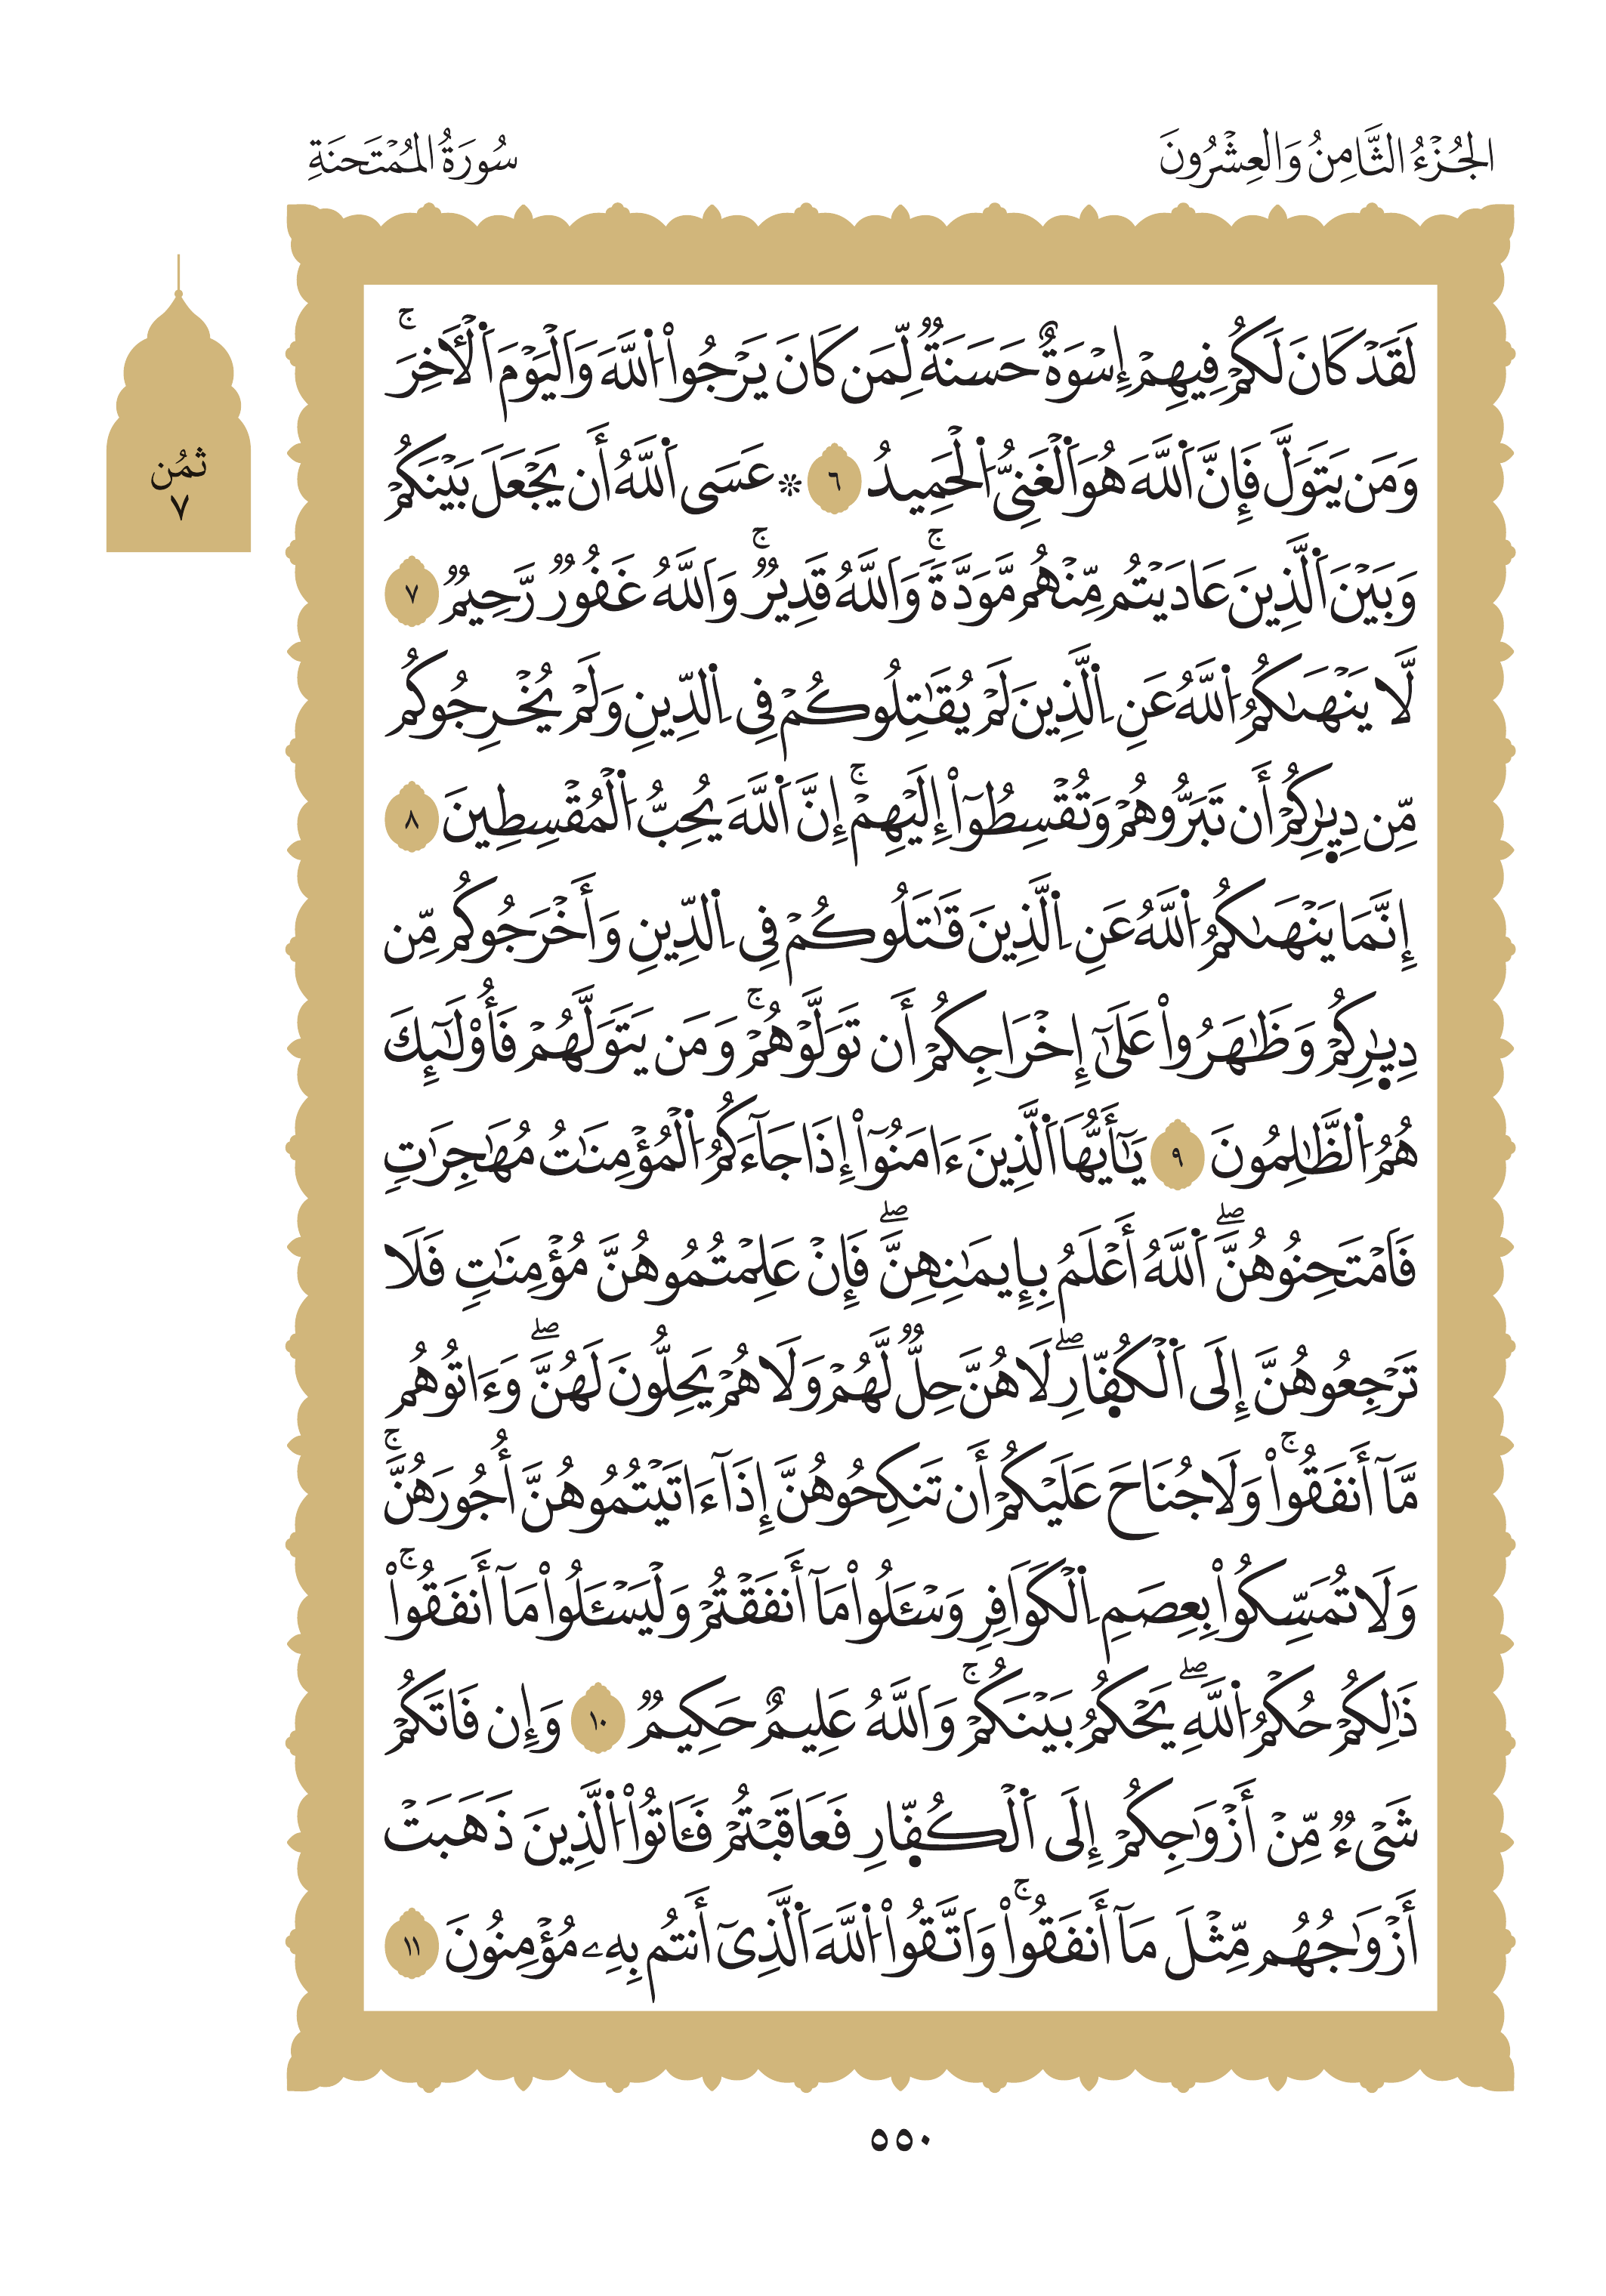 الجُزْءُ الثَّامِنُ وَالعِشْرُونَ
سُورَةُ المُمْتَحنَةِ
ثمُن
٧
لَقَدْ كَانَ لَكُمْ فِيهِمْ إِسْوَةٌ حَسَنَةٞ لِّمَن كَانَ يَرْجُواْ اُ۬للَّهَ وَالْيَوْمَ اَ۬لْأٓخِرَۚ
وَمَن يَتَوَلَّ فَإِنَّ اَ۬للَّهَ هُوَ اَ۬لْغَنِيُّ اُ۬لْحَمِيدُ ٦ ۞ عَسَى اَ۬للَّهُ أَن يَجْعَلَ بَيْنَكُمْ
وَبَيْنَ اَ۬لَّذِينَ عَادَيْتُم مِّنْهُم مَّوَدَّةٗۚ وَاللَّهُ قَدِيرٞۚ وَاللَّهُ غَفُورٞ رَّحِيمٞ ٧
لَّا يَنْهَىٰكُمُ اُ۬للَّهُ عَنِ اِ۬لَّذِينَ لَمْ يُقَٰتِلُوكُمْ فِي اِ۬لدِّينِ وَلَمْ يُخْرِجُوكُم
مِّن دِيٰ۪رِكُمْ أَن تَبَرُّوهُمْ وَتُقْسِطُوٓاْ إِلَيْهِمْۚ إِنَّ اَ۬للَّهَ يُحِبُّ اُ۬لْمُقْسِطِينَ ٨
إِنَّمَا يَنْهَىٰكُمُ اُ۬للَّهُ عَنِ اِ۬لَّذِينَ قَٰتَلُوكُمْ فِي اِ۬لدِّينِ وَأَخْرَجُوكُم مِّن
دِيٰ۪رِكُمْ وَظَٰهَرُواْ عَلَىٰٓ إِخْرَاجِكُمْ أَن تَوَلَّوْهُمْۚ وَمَن يَتَوَلَّهُمْ فَأُوْلَٰٓئِكَ
هُمُ اُ۬لظَّٰلِمُونَ ٩ يَٰٓأَيُّهَا اَ۬لَّذِينَ ءَامَنُوٓاْ إِذَا جَآءَكُمُ اُ۬لْمُؤْمِنَٰتُ مُهَٰجِرَٰتٖ
فَامْتَحِنُوهُنَّۖ اَ۬للَّهُ أَعْلَمُ بِإِيمَٰنِهِنَّۖ فَإِنْ عَلِمْتُمُوهُنَّ مُؤْمِنَٰتٖ فَلَا
تَرْجِعُوهُنَّ إِلَى اَ۬لْكُفّ۪ارِۖ لَا هُنَّ حِلّٞ لَّهُمْ وَلَا هُمْ يَحِلُّونَ لَهُنَّۖ وَءَاتُوهُم
مَّآ أَنفَقُواْۚ وَلَا جُنَاحَ عَلَيْكُمْ أَن تَنكِحُوهُنَّ إِذَآ ءَاتَيْتُمُوهُنَّ أُجُورَهُنَّۚ
وَلَا تُمَسِّكُواْ بِعِصَمِ اِ۬لْكَوَافِرِ وَسْـَٔلُواْ مَآ أَنفَقْتُمْ وَلْيَسْـَٔلُواْ مَآ أَنفَقُواْۚ
ذَٰلِكُمْ حُكْمُ اُ۬للَّهِۖ يَحْكُمُ بَيْنَكُمْۚ وَاللَّهُ عَلِيمٌ حَكِيمٞ ١٠ وَإِن فَاتَكُمْ
شَيْءٞ مِّنْ أَزْوَٰجِكُمْ إِلَى اَ۬لْكُفّ۪ارِ فَعَاقَبْتُمْ فَـَٔاتُواْ اُ۬لَّذِينَ ذَهَبَتْ
أَزْوَٰجُهُم مِّثْلَ مَآ أَنفَقُواْۚ وَاتَّقُواْ اُ۬للَّهَ اَ۬لَّذِيٓ أَنتُم بِهِۦ مُؤْمِنُونَ ١١
٥٥٠